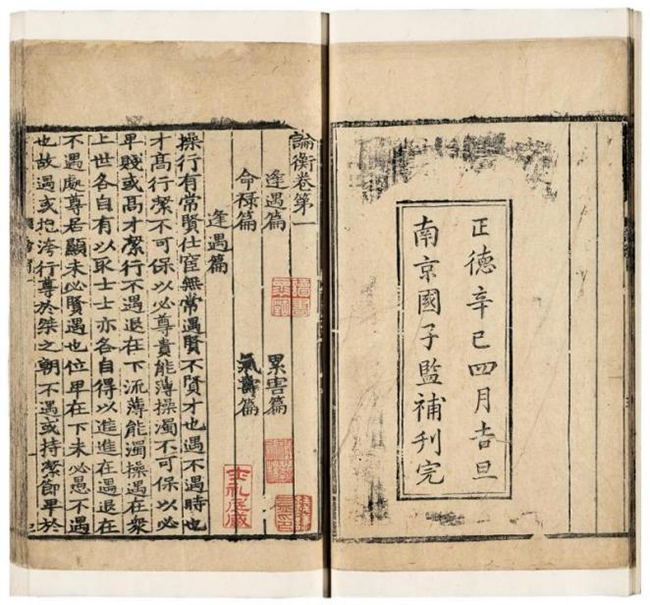 正德辛巳四月吉旦
南京國子監補刊完
論衡卷第一
逢遇篇 累害篇
命祿篇 氣壽篇
逢遇篇
操行有常賢仕宦無常遇賢不賢才也遇不遇時也
才髙行潔不可保以必尊貴能薄操濁不可保以必
卑賤或髙才潔行不遇退在下流薄能濁操遇在衆
上世各自有以取士士亦各自得以進進在遇退在
不遇處尊居顯未必賢遇也位卑在下未必愚不遇
也故遇或抱洿行尊於桀之朝不遇或持潔節卑於